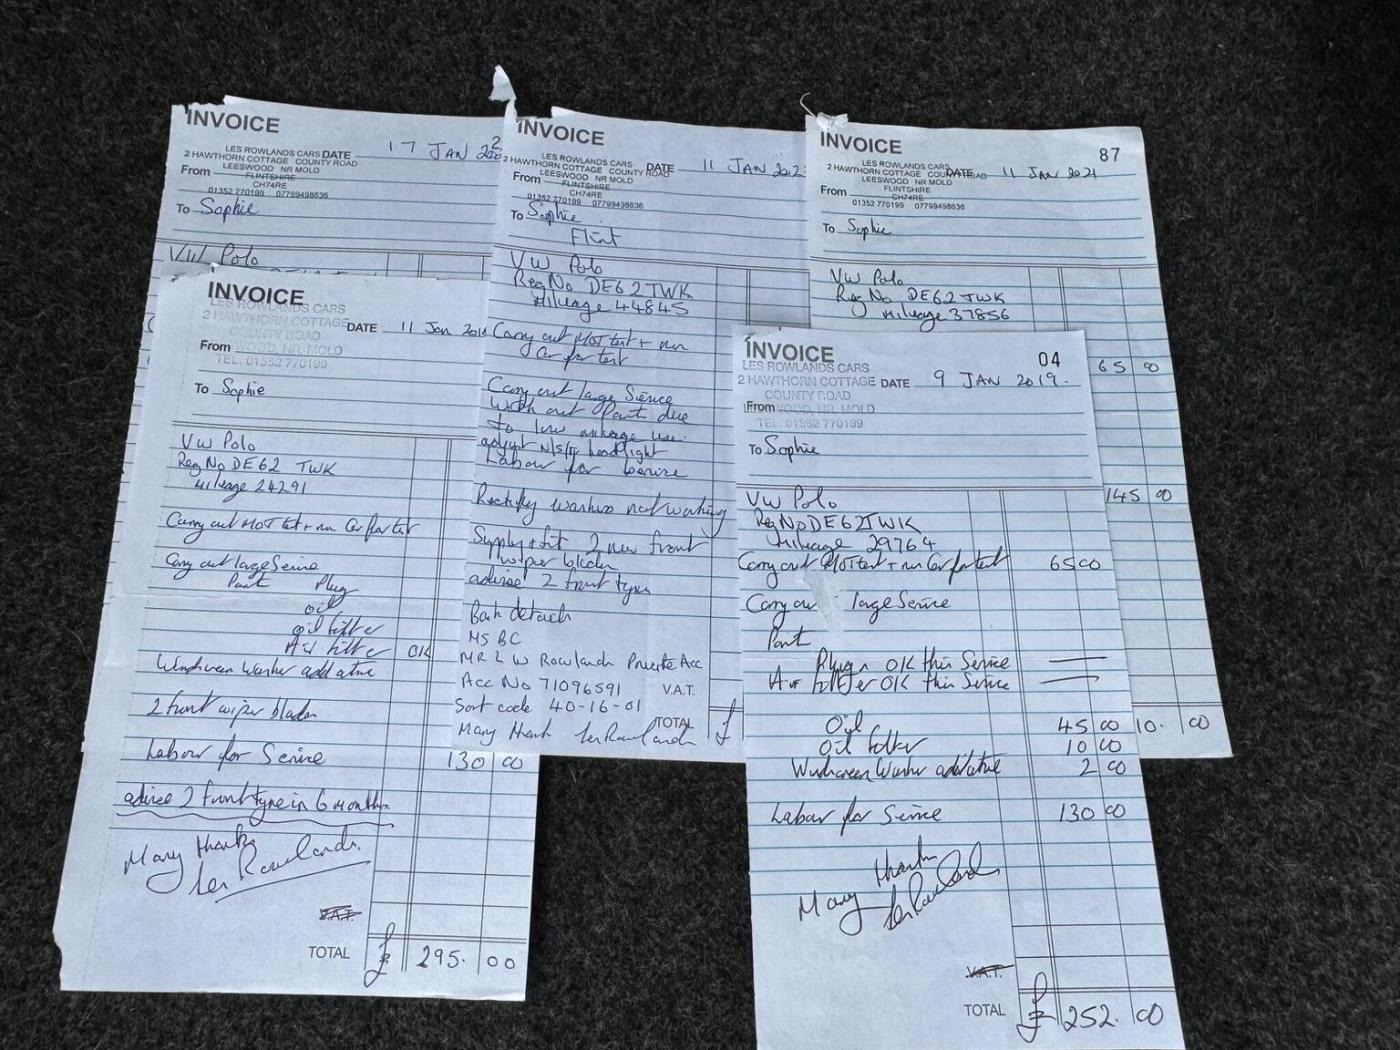 INVOICE
LES ROWLANDS CARS
2 HAWTHORN COTTAGE COUNTY ROAD
LEESWOOD NR MOLD
FLINTSHIRE
CH74RE
01352 770199 07799498636
DATE 17 JAN
From
To Sophie
VW Polo
INVOICE
LES ROWLANDS CARS
2 HAWTHORN COTTAGE COUNTY ROAD
LEESWOOD NR MOLD
FLINTSHIRE
CH74RE
01352 770199 07799498636
DATE 11 JAN 202
From
To Sophie
Flint
VW Polo
Reg No DE62 TWK
Mileage 44845
Carry out MOT test + run
Car for test
Carry out large Service
With out Parts due
to low mileage use.
adjust N/S/F headlight
Labour for Service
Rectifey washers not working
Supply + fit 2 new front
wiper blades
advise 2 front tyres
Bank details
HSBC
MR L W Rowlands Private Acc
Acc No 71096591
Sort code 40-16-01
Many Thanks Les Rowlands
V.A.T.
TOTAL £
INVOICE
87
LES ROWLANDS CARS
2 HAWTHORN COTTAGE COUNTY ROAD
LEESWOOD NR MOLD
FLINTSHIRE
CH74RE
01352 770199 07799498636
DATE 11 JAN 2021
From
To Sophie
VW Polo
Reg No DE62 TWK
Mileage 37856
65 00
145 00
10. 00
INVOICE
LES ROWLANDS CARS
2 HAWTHORN COTTAGE
COUNTY ROAD
WOOD, NR. MOLD
TEL. 01352 770199
DATE 11 Jan 201
From
To Sophie
VW Polo
Reg No DE62 TWK
Mileage 24291
Carry out MOT test + run Car for test
Carry out large Service
Parts Plugs
oil
oil filter
Air filter OK
Windscreen Washer additive
2 front wiper blades
Labour for Service 130 00
advise 2 front tyre in 6 months.
Many thanks
Les Rowlands.
V.A.T.
TOTAL £ 295. 00
INVOICE
04
LES ROWLANDS CARS
2 HAWTHORN COTTAGE
COUNTY ROAD
WOOD, NR. MOLD
TEL. 01352 770199
DATE 9 JAN 2019.
From
To Sophie
VW Polo
Reg No DE62 TWK
Mileage 29764
Carry out MOT test + run Car for test 65 00
Carry out large Service
Parts
Plugs OK this Service
Air filter OK this Service
Oil 45 00
Oil filter 10 00
Windscreen Washer additive 2 00
Labour for Service 130 00
Many thanks
Les Rowlands
V.A.T.
TOTAL £ 252. 00